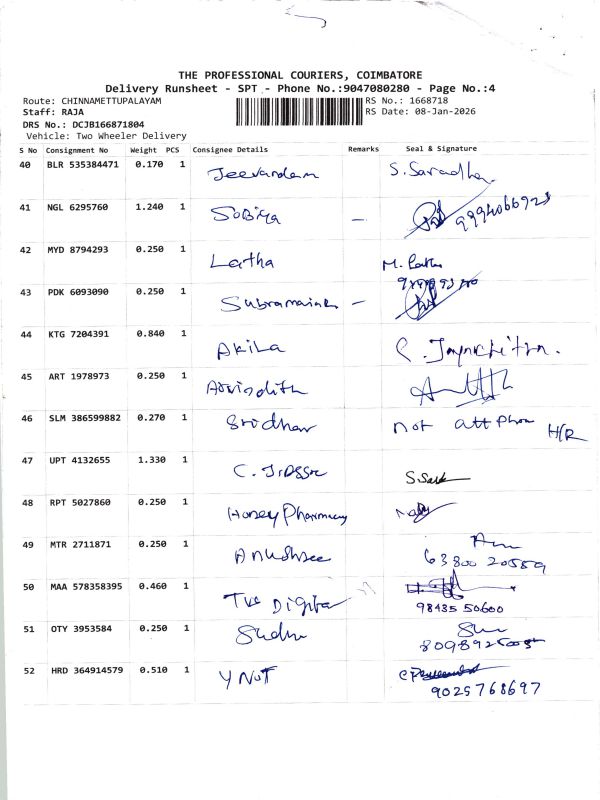 THE PROFESSIONAL COURIERS, COIMBATORE
Delivery Runsheet - SPT - Phone No.:9047080280 - Page No.:4
Route: CHINNAMETTUPALAYAM
RS No.: 1668718
Staff: RAJA
RS Date: 08-Jan-2026
DRS No.: DCJB166871804
Vehicle: Two Wheeler Delivery
S No Consignment No Weight PCS Consignee Details Remarks Seal & Signature
40 BLR 535384471 0.170 1 Jeevandam S. Saradha
41 NGL 6295760 1.240 1 Sobiya –
42 MYD 8794293 0.250 1 Latha M. Latha
43 PDK 6093090 0.250 1 –
44 KTG 7204391 0.840 1 Akila
45 ART 1978973 0.250 1
46 SLM 386599882 0.270 1 Sridhar not att phone H/R
47 UPT 4132655 1.330 1 C.
48 RPT 5027860 0.250 1 Honey Pharmacy
49 MTR 2711871 0.250 1 Anushree
63800 20559
50 MAA 578358395 0.460 1 Digital
98435 50600
51 OTY 3953584 0.250 1 Sudhu
52 HRD 364914579 0.510 1 Y NOT
9025768697